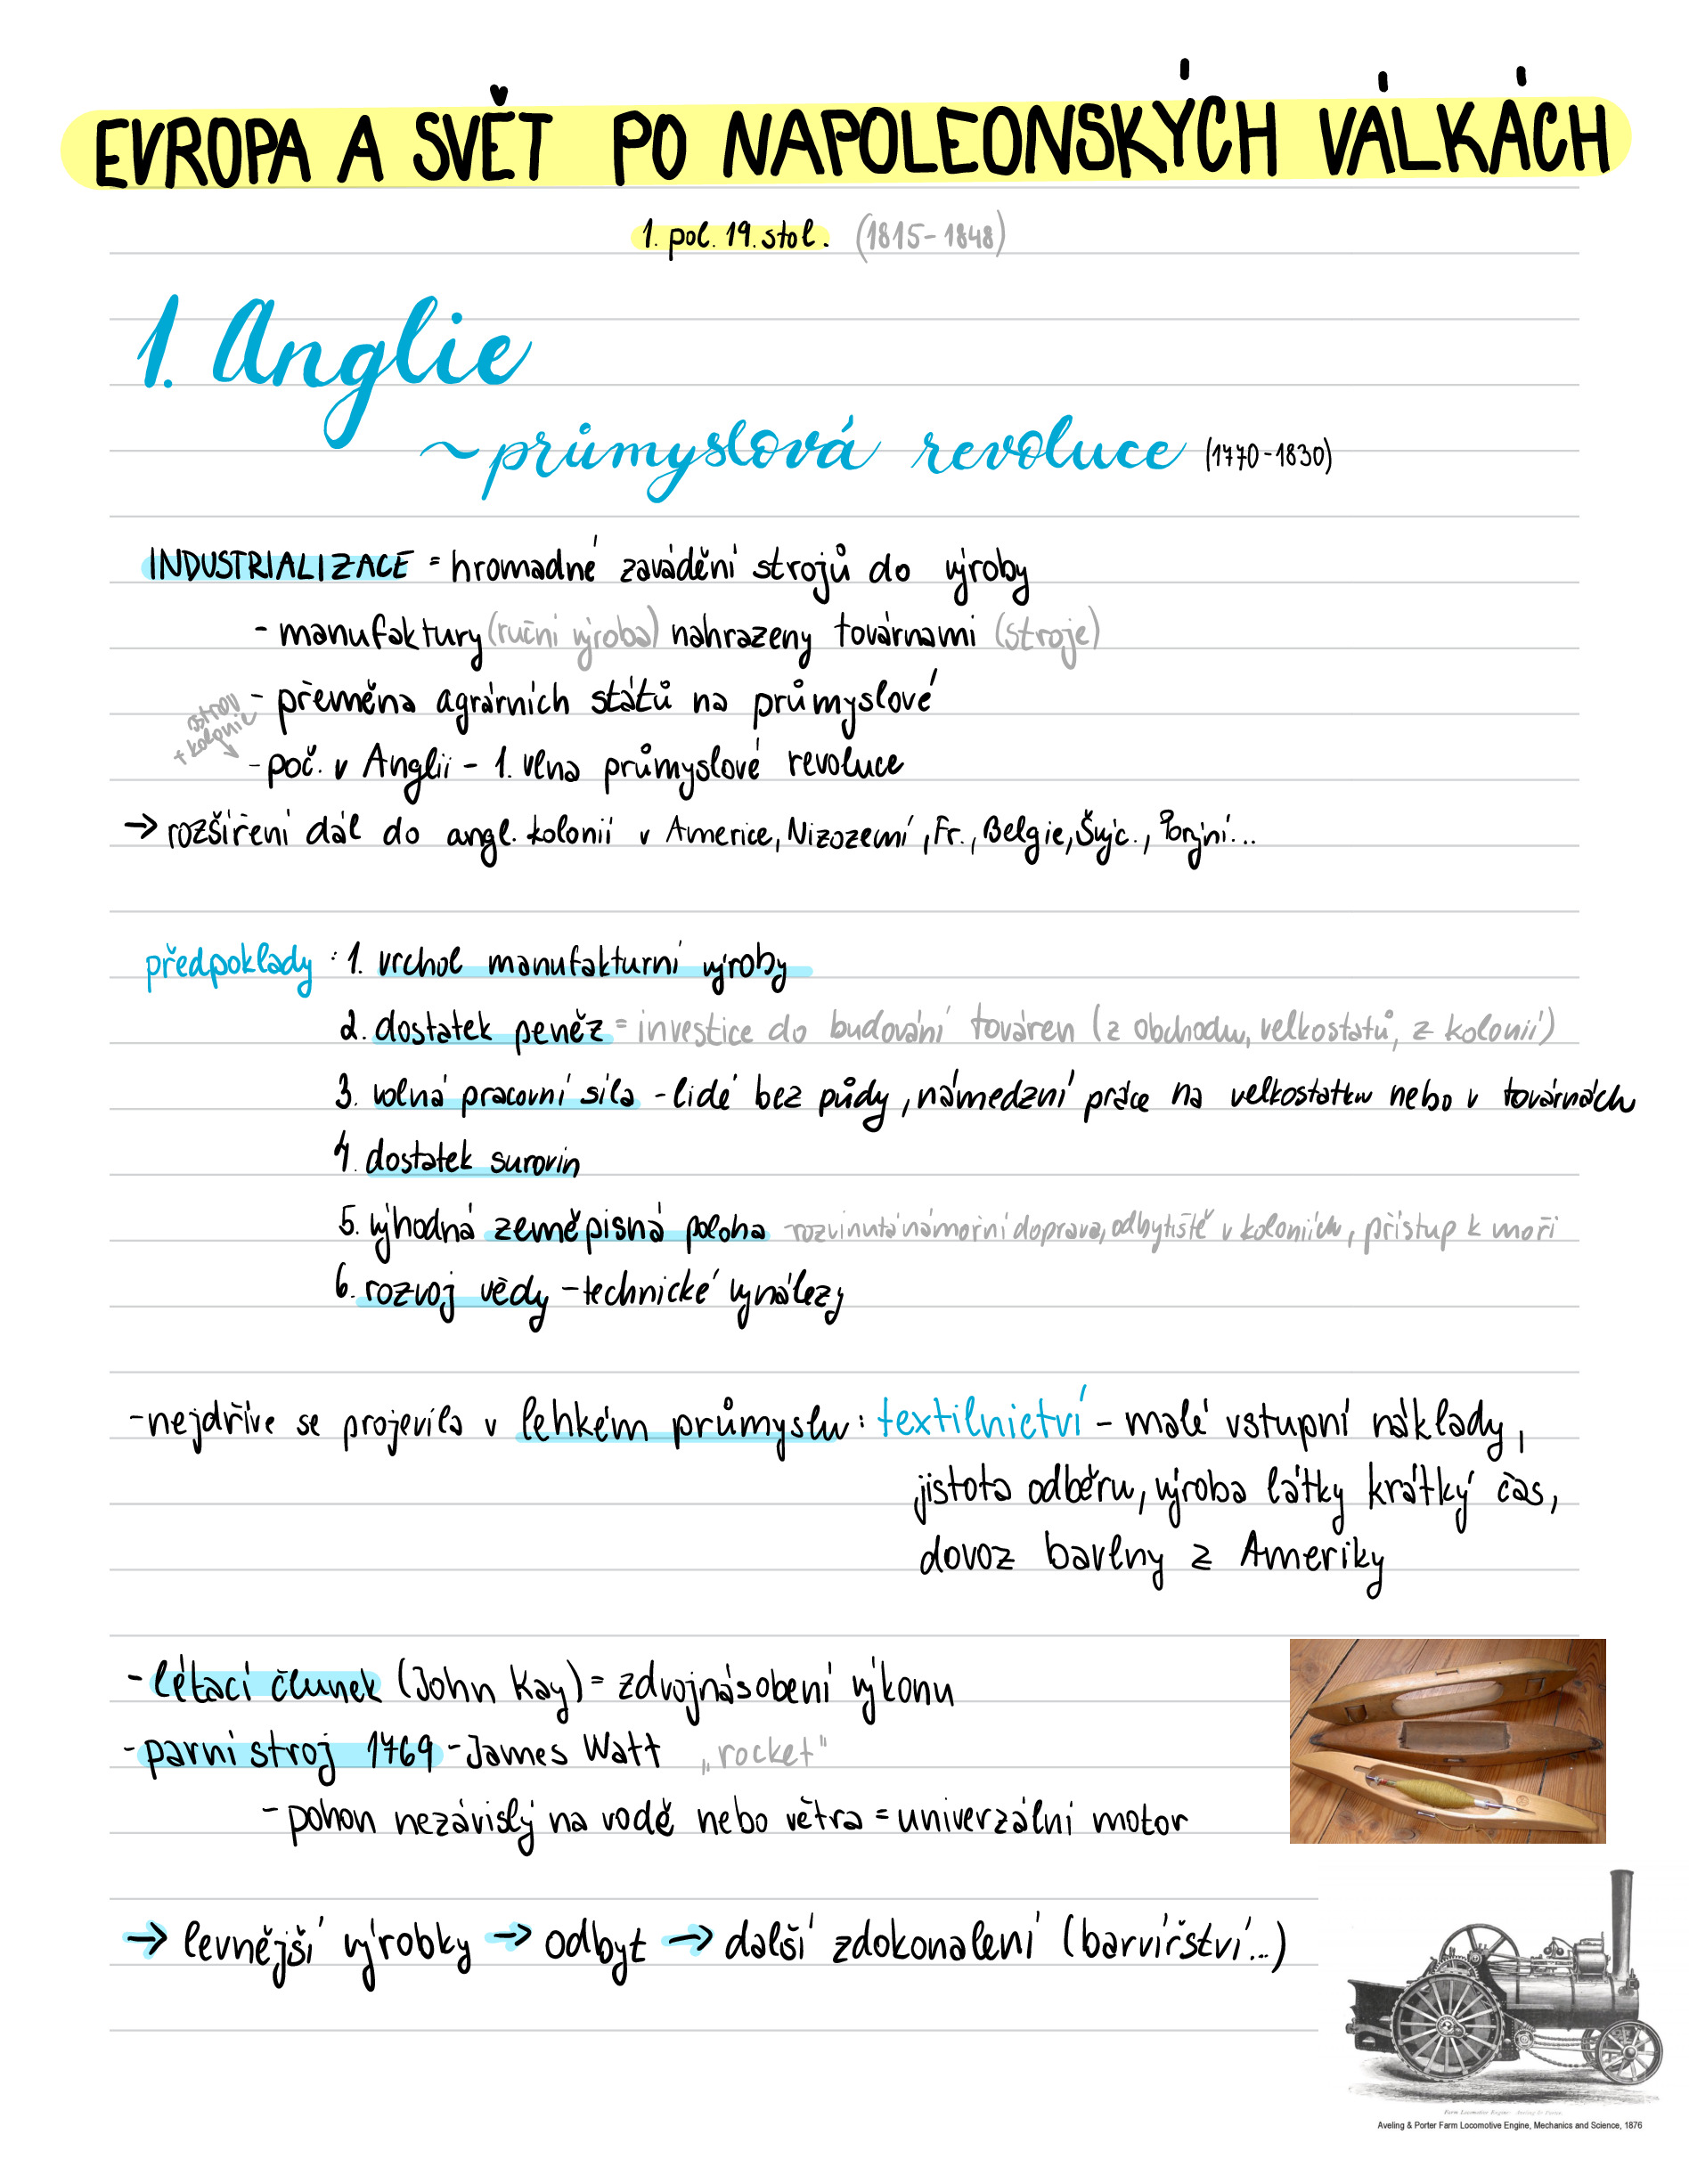 EVROPA A SVĚT PO NAPOLEONSKÝCH VÁLKÁCH
1. pol. 19. stol. (1815-1848)
1. Anglie
~průmyslová revoluce (1770-1830)
INDUSTRIALIZACE = hromadné zavádění strojů do výroby
- manufaktury (ruční výroba) nahrazeny továrnami (stroje)
- přeměna agrárních států na průmyslové
ostrov
+ kolonie
- poč. v Anglii - 1. vlna průmyslové revoluce
→ rozšíření dál do angl. kolonií v Americe, Nizozemí, Fr., Belgie, Švýc., Porýní...
předpoklady: 1. vrchol manufakturní výroby
2. dostatek peněz = investice do budování továren (z obchodu, velkostatů, z kolonií)
3. volná pracovní síla - lidé bez půdy, námedzní práce na velkostatku nebo v továrnách
4. dostatek surovin
5. výhodná zeměpisná poloha - rozvinutá námořní doprava, odbytiště v koloniích, přístup k moři
6. rozvoj vědy - technické vynálezy
- nejdříve se projevila v lehkém průmyslu: textilnictví - malé vstupní náklady,
jistota odběru, výroba látky krátký čas,
dovoz bavlny z Ameriky
- létací člunek (John Kay) = zdvojnásobení výkonu
- parní stroj 1769 - James Watt „rocket"
- pohon nezávislý na vodě nebo větra = univerzální motor
→ levnější výrobky → odbyt → další zdokonalení (barvířství...)
Farm Locomotive Engine.
Aveling & Porter Farm Locomotive Engine, Mechanics and Science, 1876